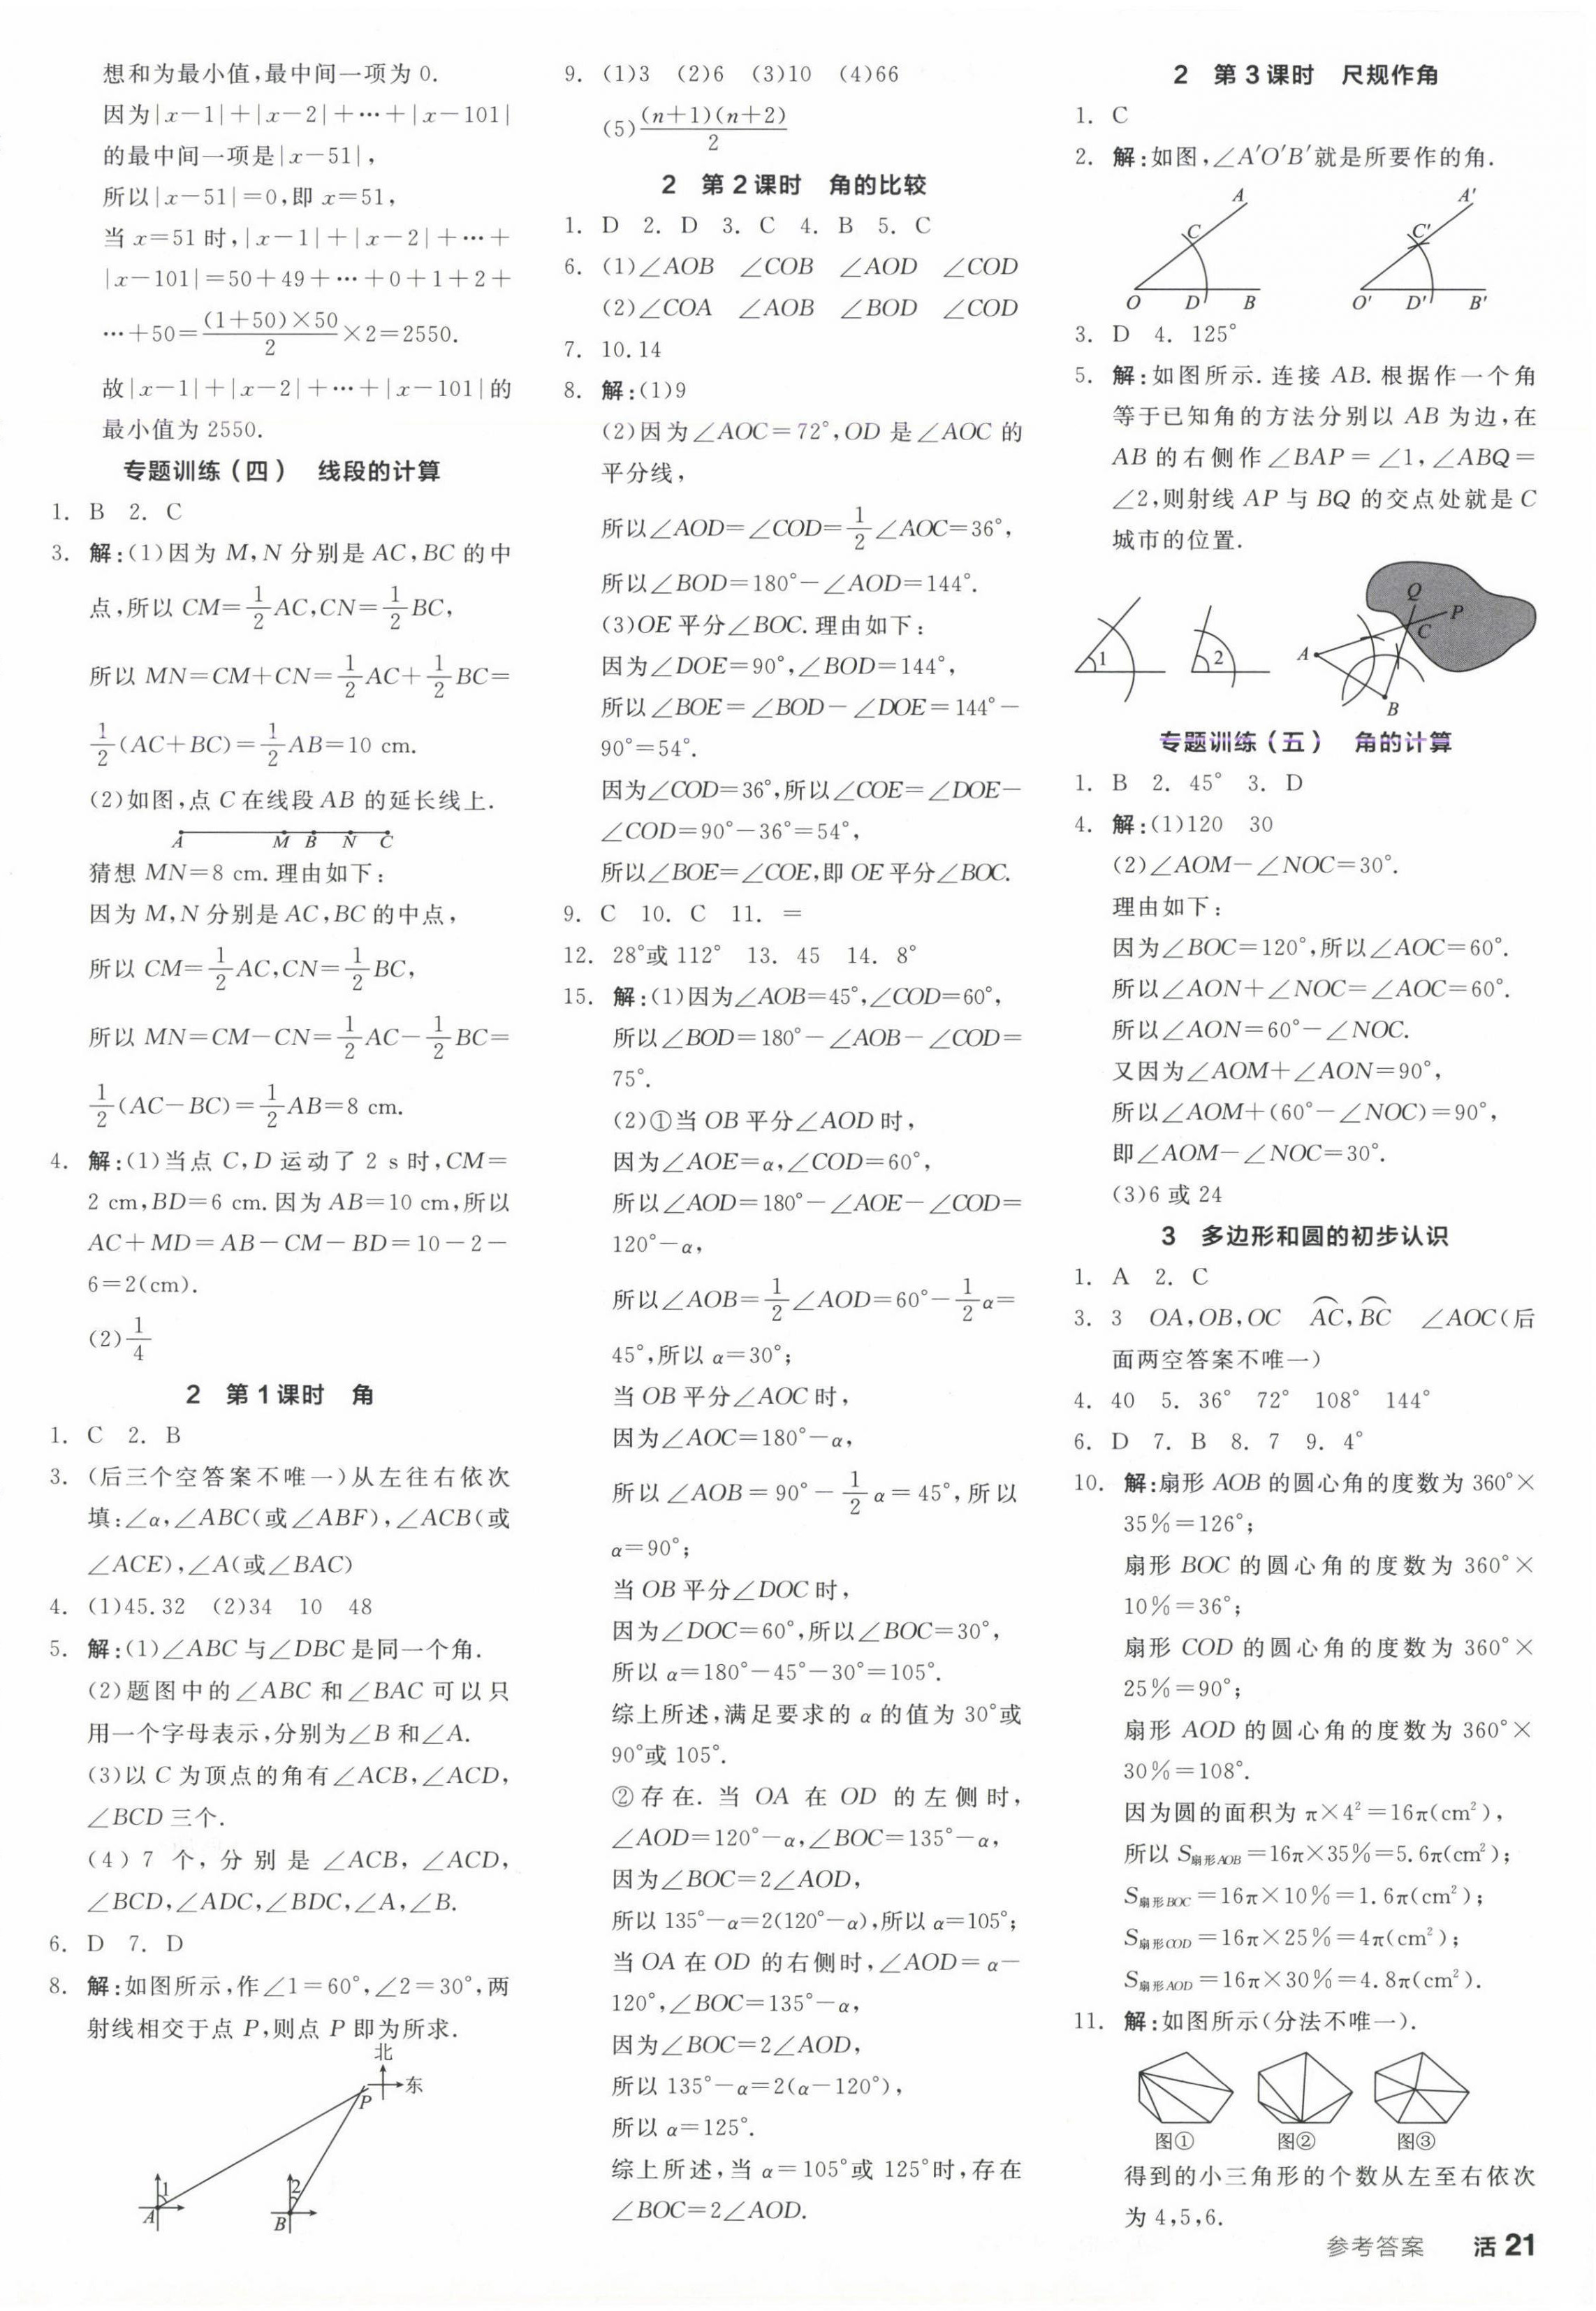 想和为最小值,最中间一项为 0.
因为|x-1|+|x-2|+…+|x-101|
的最中间一项是|x-51|,
所以|x-51|=0,即 x=51,
当 x=51 时,|x-1|+|x-2|+…+
|x-101|=50+49+…+0+1+2+
…+50=(1+50)×50/2×2=2550.
故|x-1|+|x-2|+…+|x-101|的
最小值为 2550.
专题训练(四) 线段的计算
1. B 2. C
3. 解:(1)因为 M,N 分别是 AC,BC 的中
点,所以 CM=1/2AC,CN=1/2BC,
所以 MN=CM+CN=1/2AC+1/2BC=
1/2(AC+BC)=1/2AB=10 cm.
(2)如图,点 C 在线段 AB 的延长线上.
A M B N C
猜想 MN=8 cm.理由如下:
因为 M,N 分别是 AC,BC 的中点,
所以 CM=1/2AC,CN=1/2BC,
所以 MN=CM-CN=1/2AC-1/2BC=
1/2(AC-BC)=1/2AB=8 cm.
4. 解:(1)当点 C,D 运动了 2 s 时,CM=
2 cm,BD=6 cm.因为 AB=10 cm,所以
AC+MD=AB-CM-BD=10-2-
6=2(cm).
(2)1/4
2 第1课时 角
1. C 2. B
3. (后三个空答案不唯一)从左往右依次
填:∠α,∠ABC(或∠ABF),∠ACB(或
∠ACE),∠A(或∠BAC)
4. (1)45.32 (2)34 10 48
5. 解:(1)∠ABC 与∠DBC 是同一个角.
(2)题图中的∠ABC 和∠BAC 可以只
用一个字母表示,分别为∠B 和∠A.
(3)以 C 为顶点的角有∠ACB,∠ACD,
∠BCD 三个.
(4)7 个,分别是∠ACB,∠ACD,
∠BCD,∠ADC,∠BDC,∠A,∠B.
6. D 7. D
8. 解:如图所示,作∠1=60°,∠2=30°,两
射线相交于点 P,则点 P 即为所求.
北
东
P
1
2
A
B
9. (1)3 (2)6 (3)10 (4)66
(5)(n+1)(n+2)/2
2 第2课时 角的比较
1. D 2. D 3. C 4. B 5. C
6. (1)∠AOB ∠COB ∠AOD ∠COD
(2)∠COA ∠AOB ∠BOD ∠COD
7. 10.14
8. 解:(1)9
(2)因为∠AOC=72°,OD 是∠AOC 的
平分线,
所以∠AOD=∠COD=1/2∠AOC=36°,
所以∠BOD=180°-∠AOD=144°.
(3)OE 平分∠BOC.理由如下:
因为∠DOE=90°,∠BOD=144°,
所以∠BOE=∠BOD-∠DOE=144°-
90°=54°.
因为∠COD=36°,所以∠COE=∠DOE-
∠COD=90°-36°=54°,
所以∠BOE=∠COE,即 OE 平分∠BOC.
9. C 10. C 11. =
12. 28°或 112° 13. 45 14. 8°
15. 解:(1)因为∠AOB=45°,∠COD=60°,
所以∠BOD=180°-∠AOB-∠COD=
75°.
(2)①当 OB 平分∠AOD 时,
因为∠AOE=α,∠COD=60°,
所以∠AOD=180°-∠AOE-∠COD=
120°-α,
所以∠AOB=1/2∠AOD=60°-1/2α=
45°,所以 α=30°;
当 OB 平分∠AOC 时,
因为∠AOC=180°-α,
所以∠AOB=90°-1/2α=45°,所以
α=90°;
当 OB 平分∠DOC 时,
因为∠DOC=60°,所以∠BOC=30°,
所以 α=180°-45°-30°=105°.
综上所述,满足要求的 α 的值为 30°或
90°或 105°.
②存在.当 OA 在 OD 的左侧时,
∠AOD=120°-α,∠BOC=135°-α,
因为∠BOC=2∠AOD,
所以 135°-α=2(120°-α),所以 α=105°;
当 OA 在 OD 的右侧时,∠AOD=α-
120°,∠BOC=135°-α,
因为∠BOC=2∠AOD,
所以 135°-α=2(α-120°),
所以 α=125°.
综上所述,当 α=105°或 125°时,存在
∠BOC=2∠AOD.
2 第3课时 尺规作角
1. C
2. 解:如图,∠A′O′B′就是所要作的角.
A A′
C C′
O D B O′ D′ B′
3. D 4. 125°
5. 解:如图所示.连接 AB.根据作一个角
等于已知角的方法分别以 AB 为边,在
AB 的右侧作∠BAP=∠1,∠ABQ=
∠2,则射线 AP 与 BQ 的交点处就是 C
城市的位置.
Q
P
C
1 2 A
B
专题训练(五) 角的计算
1. B 2. 45° 3. D
4. 解:(1)120 30
(2)∠AOM-∠NOC=30°.
理由如下:
因为∠BOC=120°,所以∠AOC=60°.
所以∠AON+∠NOC=∠AOC=60°.
所以∠AON=60°-∠NOC.
又因为∠AOM+∠AON=90°,
所以∠AOM+(60°-∠NOC)=90°,
即∠AOM-∠NOC=30°.
(3)6 或 24
3 多边形和圆的初步认识
1. A 2. C
3. 3 OA,OB,OC A͡C,B͡C ∠AOC(后
面两空答案不唯一)
4. 40 5. 36° 72° 108° 144°
6. D 7. B 8. 7 9. 4°
10. 解:扇形 AOB 的圆心角的度数为 360°×
35%=126°;
扇形 BOC 的圆心角的度数为 360°×
10%=36°;
扇形 COD 的圆心角的度数为 360°×
25%=90°;
扇形 AOD 的圆心角的度数为 360°×
30%=108°.
因为圆的面积为 π×4²=16π(cm²),
所以 S扇形AOB=16π×35%=5.6π(cm²);
S扇形BOC=16π×10%=1.6π(cm²);
S扇形COD=16π×25%=4π(cm²);
S扇形AOD=16π×30%=4.8π(cm²).
11. 解:如图所示(分法不唯一).
图① 图② 图③
得到的小三角形的个数从左至右依次
为 4,5,6.
参考答案 活 21